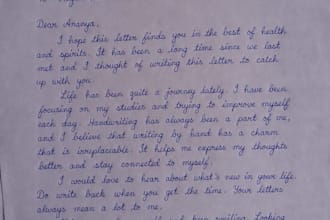 Dear Ananya,
I hope this letter finds you in the best of health
and spirits. It has been a long time since we last
met and I thought of writing this letter to catch
up with you.
Life has been quite a journey lately. I have been
focusing on my studies and trying to improve myself
each day. Handwriting has always been a part of me,
and I believe that writing by hand has a charm
that is irreplaceable. It helps me express my thoughts
better and stay connected to myself.
I would love to hear about what's new in your life.
Do write back when you get the time. Your letters
always mean a lot to me.
and keep smiling. Looking